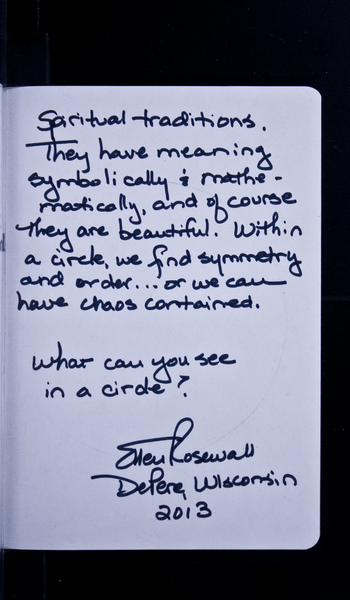 Spiritual traditions.
They have meaning
symbolically & mathe-
matically, and of course
they are beautiful. Within
a circle, we find symmetry
and order... or we can
have chaos contained.
What can you see
in a circle?
Ellen Rosewall
DePere, Wisconsin
2013